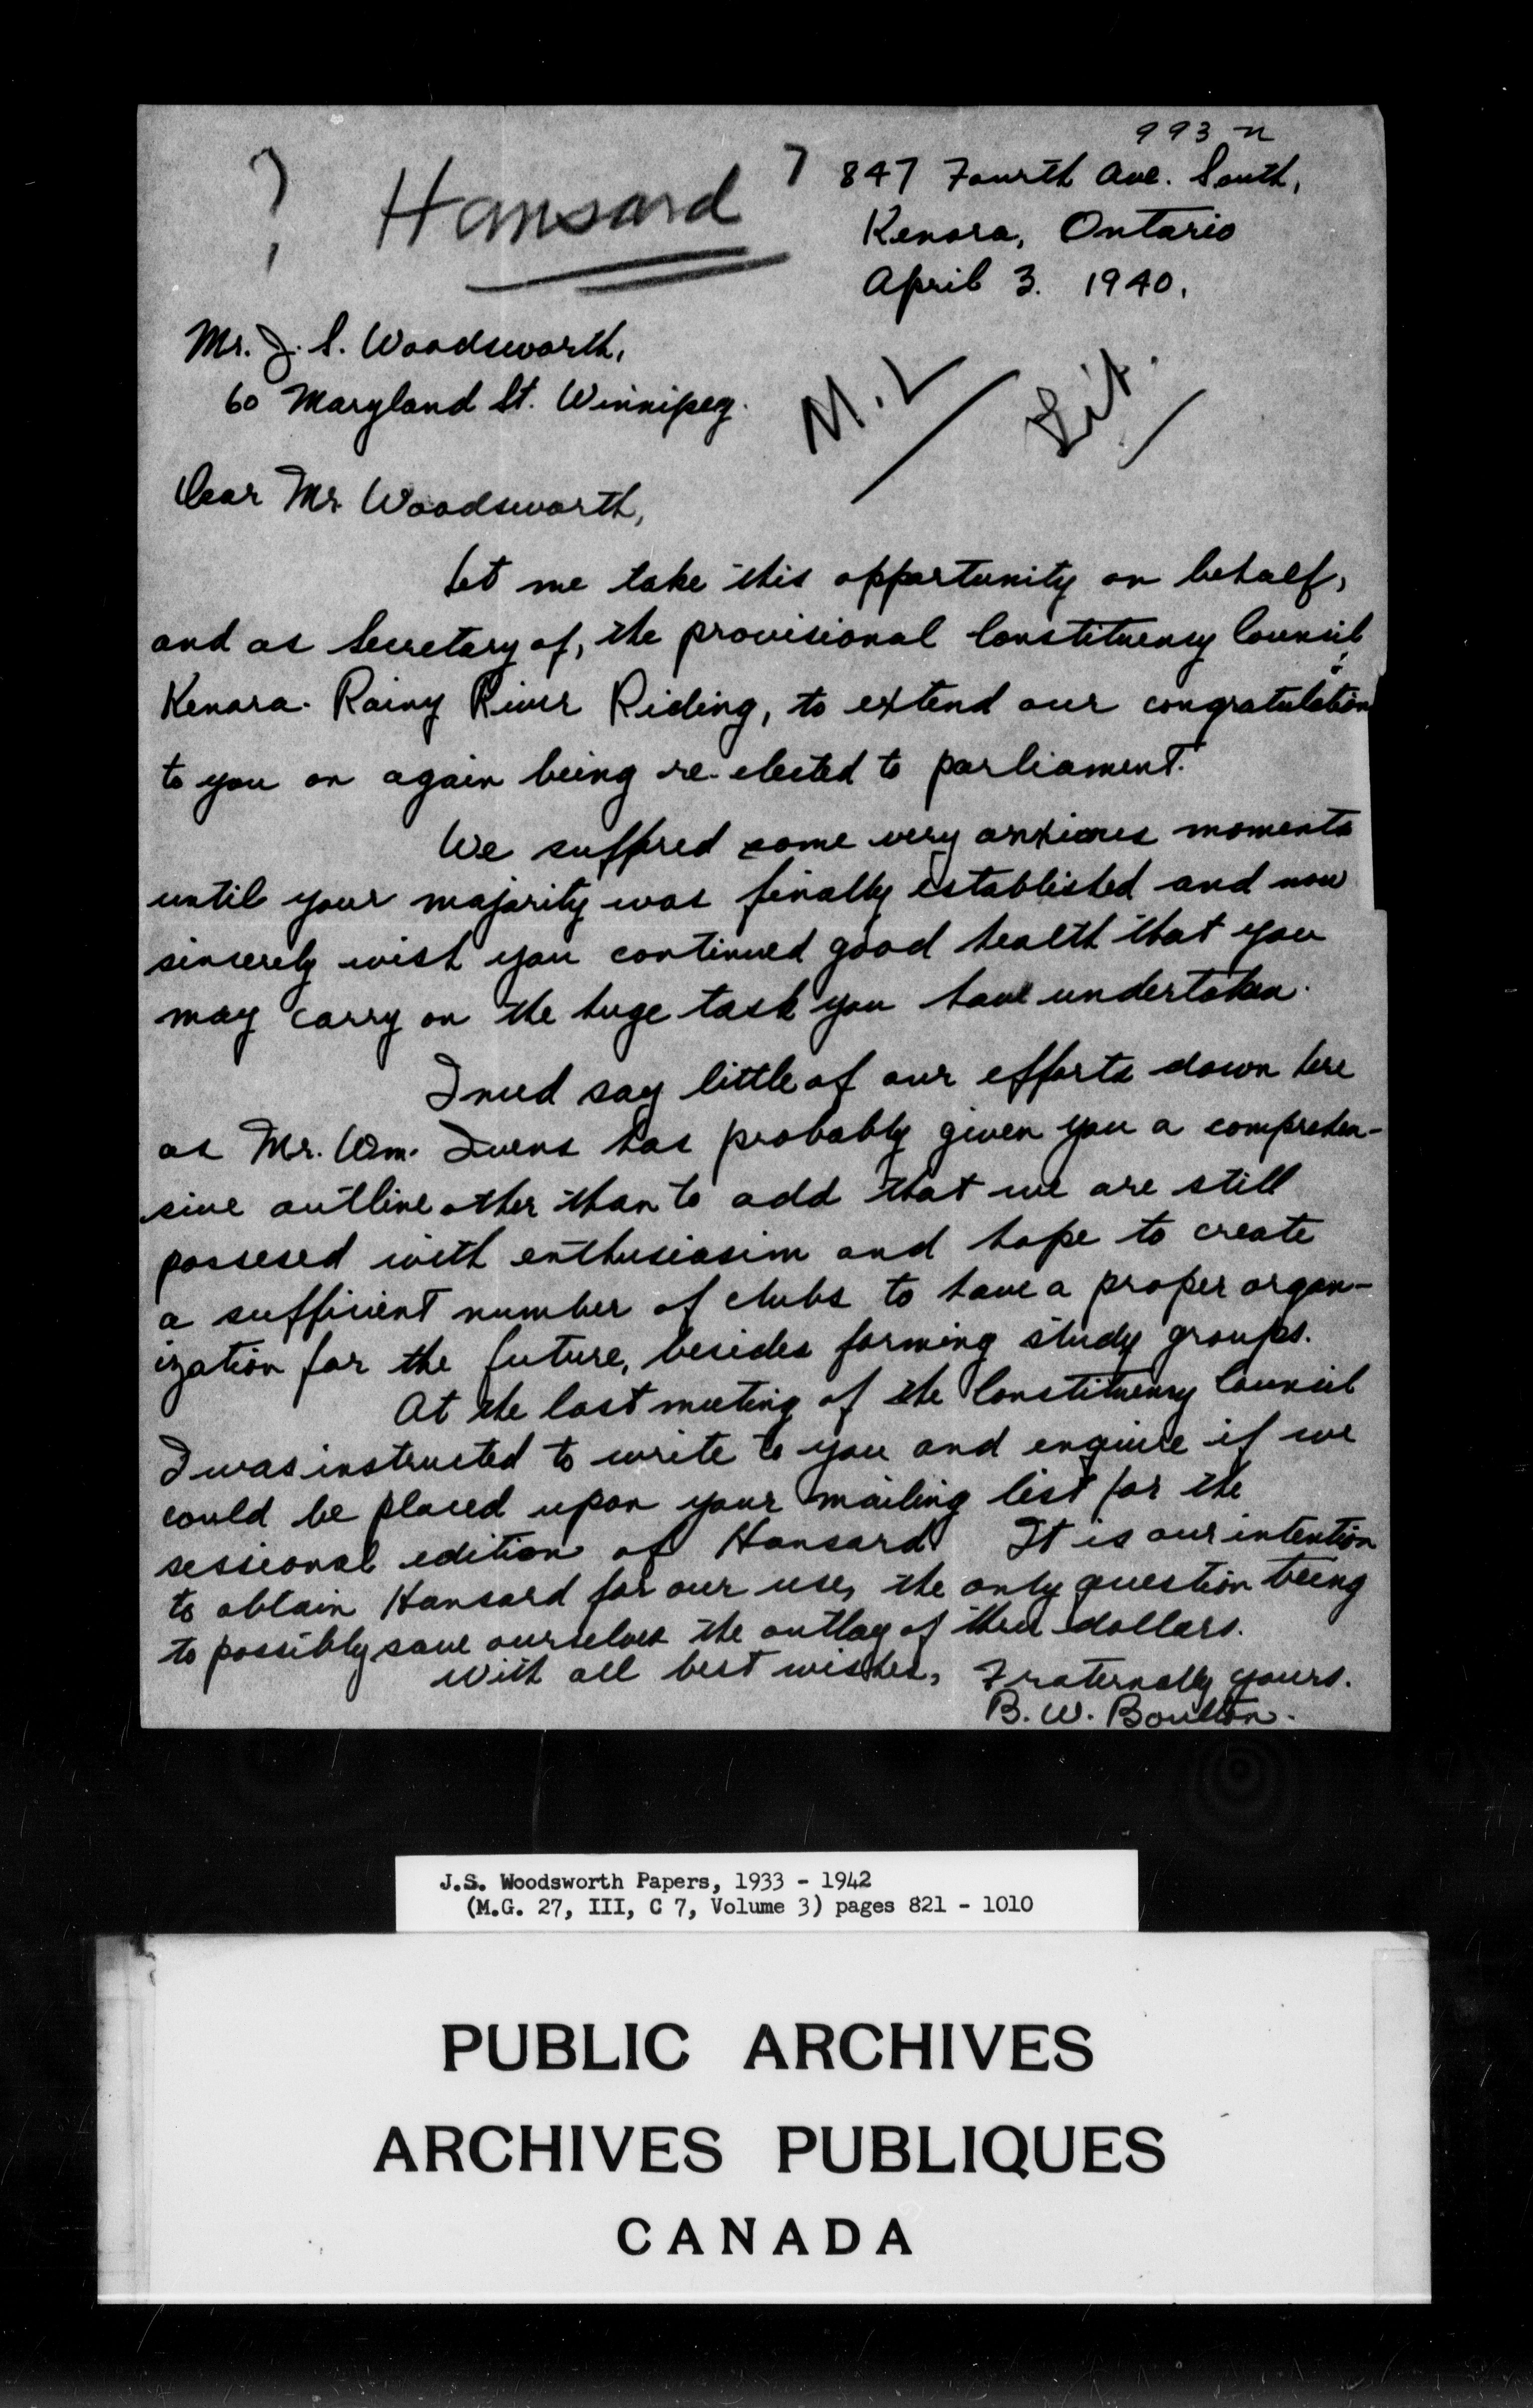 993 n
? Hansard ?
847 Fourth Ave. South,
Kenora, Ontario
April 3. 1940.
Mr. J. S. Woodsworth,
60 Maryland St. Winnipeg.
M. L
Lit.
Dear Mr Woodsworth,
Let me take this opportunity on behalf,
and as Secretary of, the provisional Constituency Council,
Kenora-Rainy River Riding, to extend our congratulations
to you on again being re-elected to parliament.
We suffered some very anxious moments
until your majority was finally established and now
sincerely wish you continued good health that you
may carry on the huge task you have undertaken.
I need say little of our efforts down here
as Mr. Wm. Ivens has probably given you a comprehen-
sive outline other than to add that we are still
possesed with enthusiasim and hope to create
a sufficient number of clubs to have a proper organ-
ization for the future, besides forming study groups.
At the last meeting of the Constituency Council
I was instructed to write to you and enquire if we
could be placed upon your mailing list for the
sessional edition of Hansard. It is our intention
to obtain Hansard for our use, the only question being
to possibly save ourselves the outlay of three dollars.
With all best wishes, Fraternally yours.
B. W. Boulton.
J.S. Woodsworth Papers, 1933 - 1942
(M.G. 27, III, C 7, Volume 3) pages 821 - 1010
PUBLIC ARCHIVES
ARCHIVES PUBLIQUES
CANADA